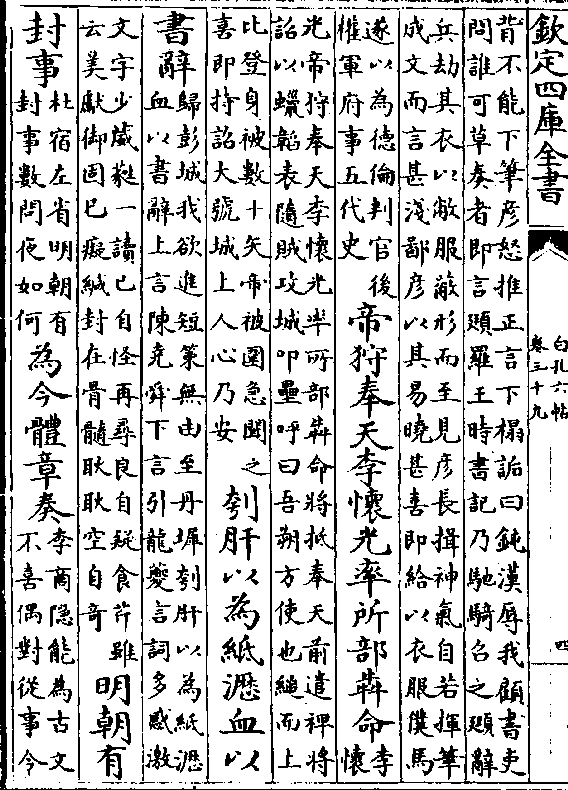 欽定四庫全書
白孔六帖
卷三十九
四
背不能下筆彥怒推正言下榻詬曰鈍漢辱我顧書吏
問誰可草奏者即言頲羅王時書記乃馳騎召之頲辭
兵劫其衣以敝服蔽形而至見彥長揖神氣自若揮筆
成文而言甚淺鄙彥以其易曉甚喜即給以衣服僕馬
遂以為德倫判官後
權軍府事五代史
帝狩奉天李懷光率所部犇命
李
懷
光帝狩奉天李懷光率所部犇命將抵奉天前遣裨將
詔以蠟韜表隨賊攻城叩壘呼曰吾朔方使也縋而上
比登身被數十矢帝被圍急聞之
喜即持詔大號城上人心乃安
刳肝以為紙瀝血以
書辭
歸彭城我欲進短策無由至丹墀刳肝以為紙瀝
血以書辭上言陳堯舜下言引龍夔言詞多感激
文字少葳蕤一讀已自怪再尋良自疑食芹雖
云美獻御固已癡緘封在骨髓耿耿空自奇
明朝有
封事
杜宿左省明朝有
封事數問夜如何
為今體章奏
李商隱能為古文
不喜偶對從事今